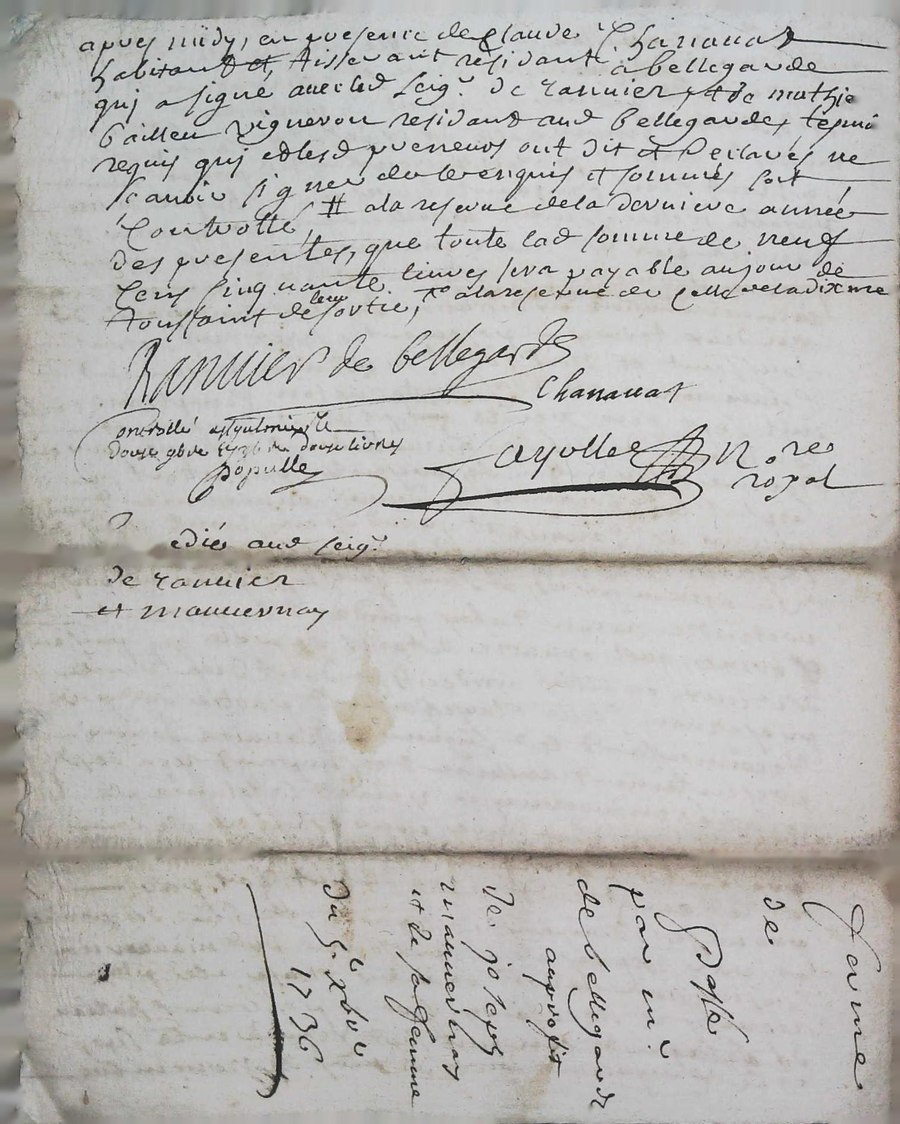 apres midy, en presence de Claude Chanauat
habitant et Tisserant residant a bellegarde
qui a signé avec led Seigr. de ranuier et de mathie
bailleu vigneron residant aud bellegarde, tesmoi
requis qui et lesd preneurs ont dit et declarés ne
scauoir signer de ce enquis et sommés soit
Controllé, # a la reserue de la derniere année
des presentes, que toute lad somme de neuf
Cens Cinquante liures sera payable au jour de
toussaint de leur sortie, a la reserue de celle de la dixme
Ranuier de bellegarde
Chanauat
Controllé
douze gbre 1736 douze livres
populle
Fayolle Nore
royal
edié aud Seigr
de ranuier
et mauuernay
ferme
de
passé
par mr
de bellegarde
au profit
de joseph
mauuernay
et de sa femme
du 5e xbre
1736